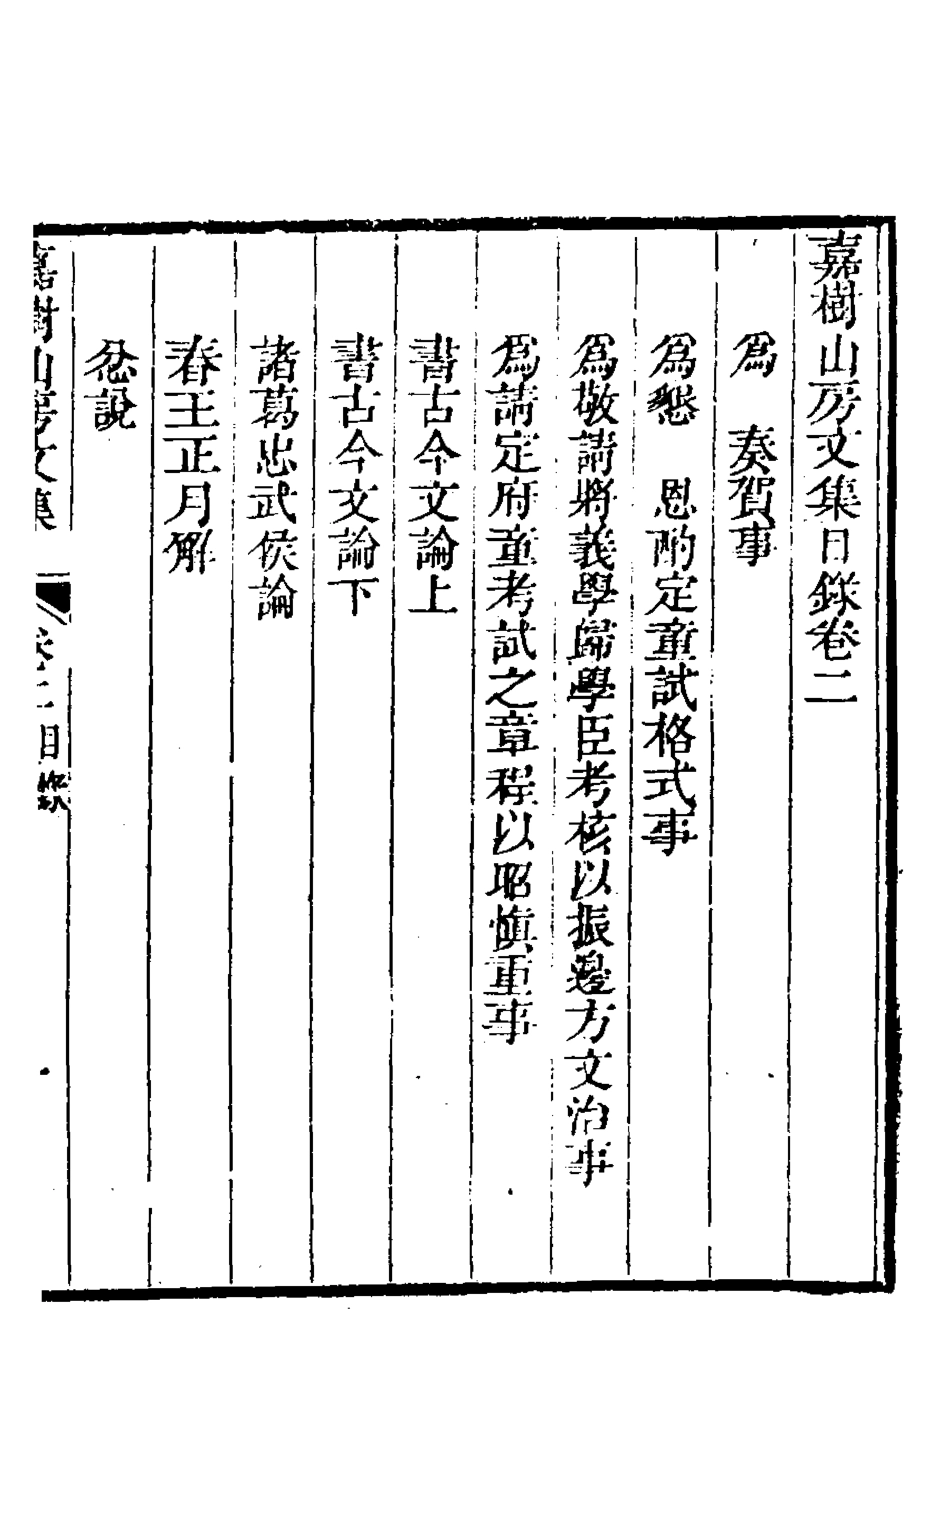 嘉樹山房文集目錄卷二
爲　奏賀事
爲懇　恩酌定童試格式事
爲敬請將義學歸學臣考核以振邊方文治事
爲請定府童考試之章程以昭慎重事
書古今文論上
書古今文論下
諸葛忠武侯論
春王正月解
忿說
嘉樹山房文集　卷二目錄